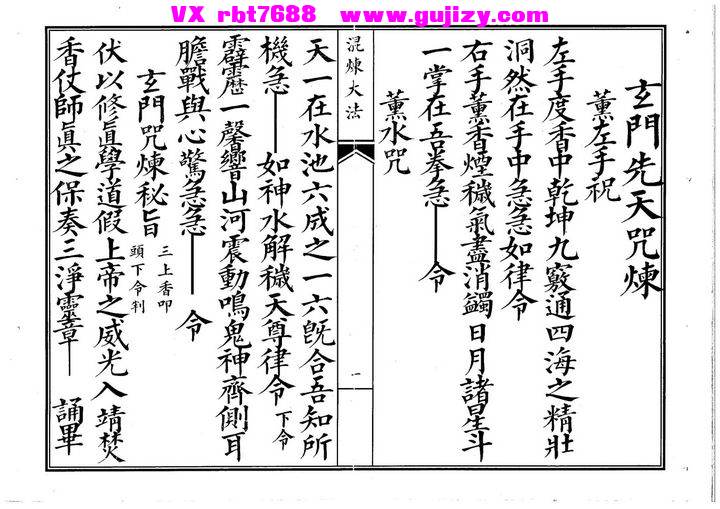 VX rbt7688 www.gujizy.com
玄門先天咒煉
薰左手祝
左手度香中乾坤九竅通四海之精壯
洞然在手中急急如律令
右手薰香煙穢氣盡消蠲日月諸星斗
一掌在吾拳急——令
薰水咒
混煉大法
一
天一在水池六成之一六既合吾知所
機急——如神水解穢天尊律令 下令
霹靂一聲響山河震動鳴鬼神齊側耳
膽戰與心驚急急——令
玄門咒煉秘旨 三上香叩頭下令判
伏以修眞學道假上帝之威光入靖焚
香仗師眞之保奏三淨靈章——誦畢